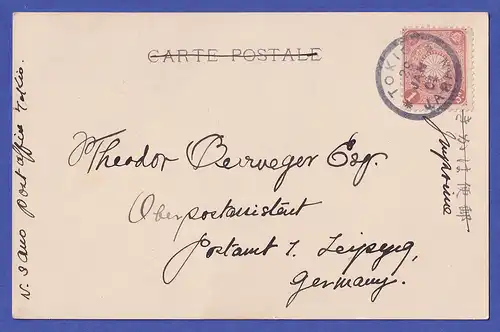 CARTE POSTALE
TOKIO JAPAN
20 JAN 02
Theodor Berweger Esq.
Oberpostassistent
Postamt 1. Leipzig,
Germany.
Post office Tokio.
きか は便郵